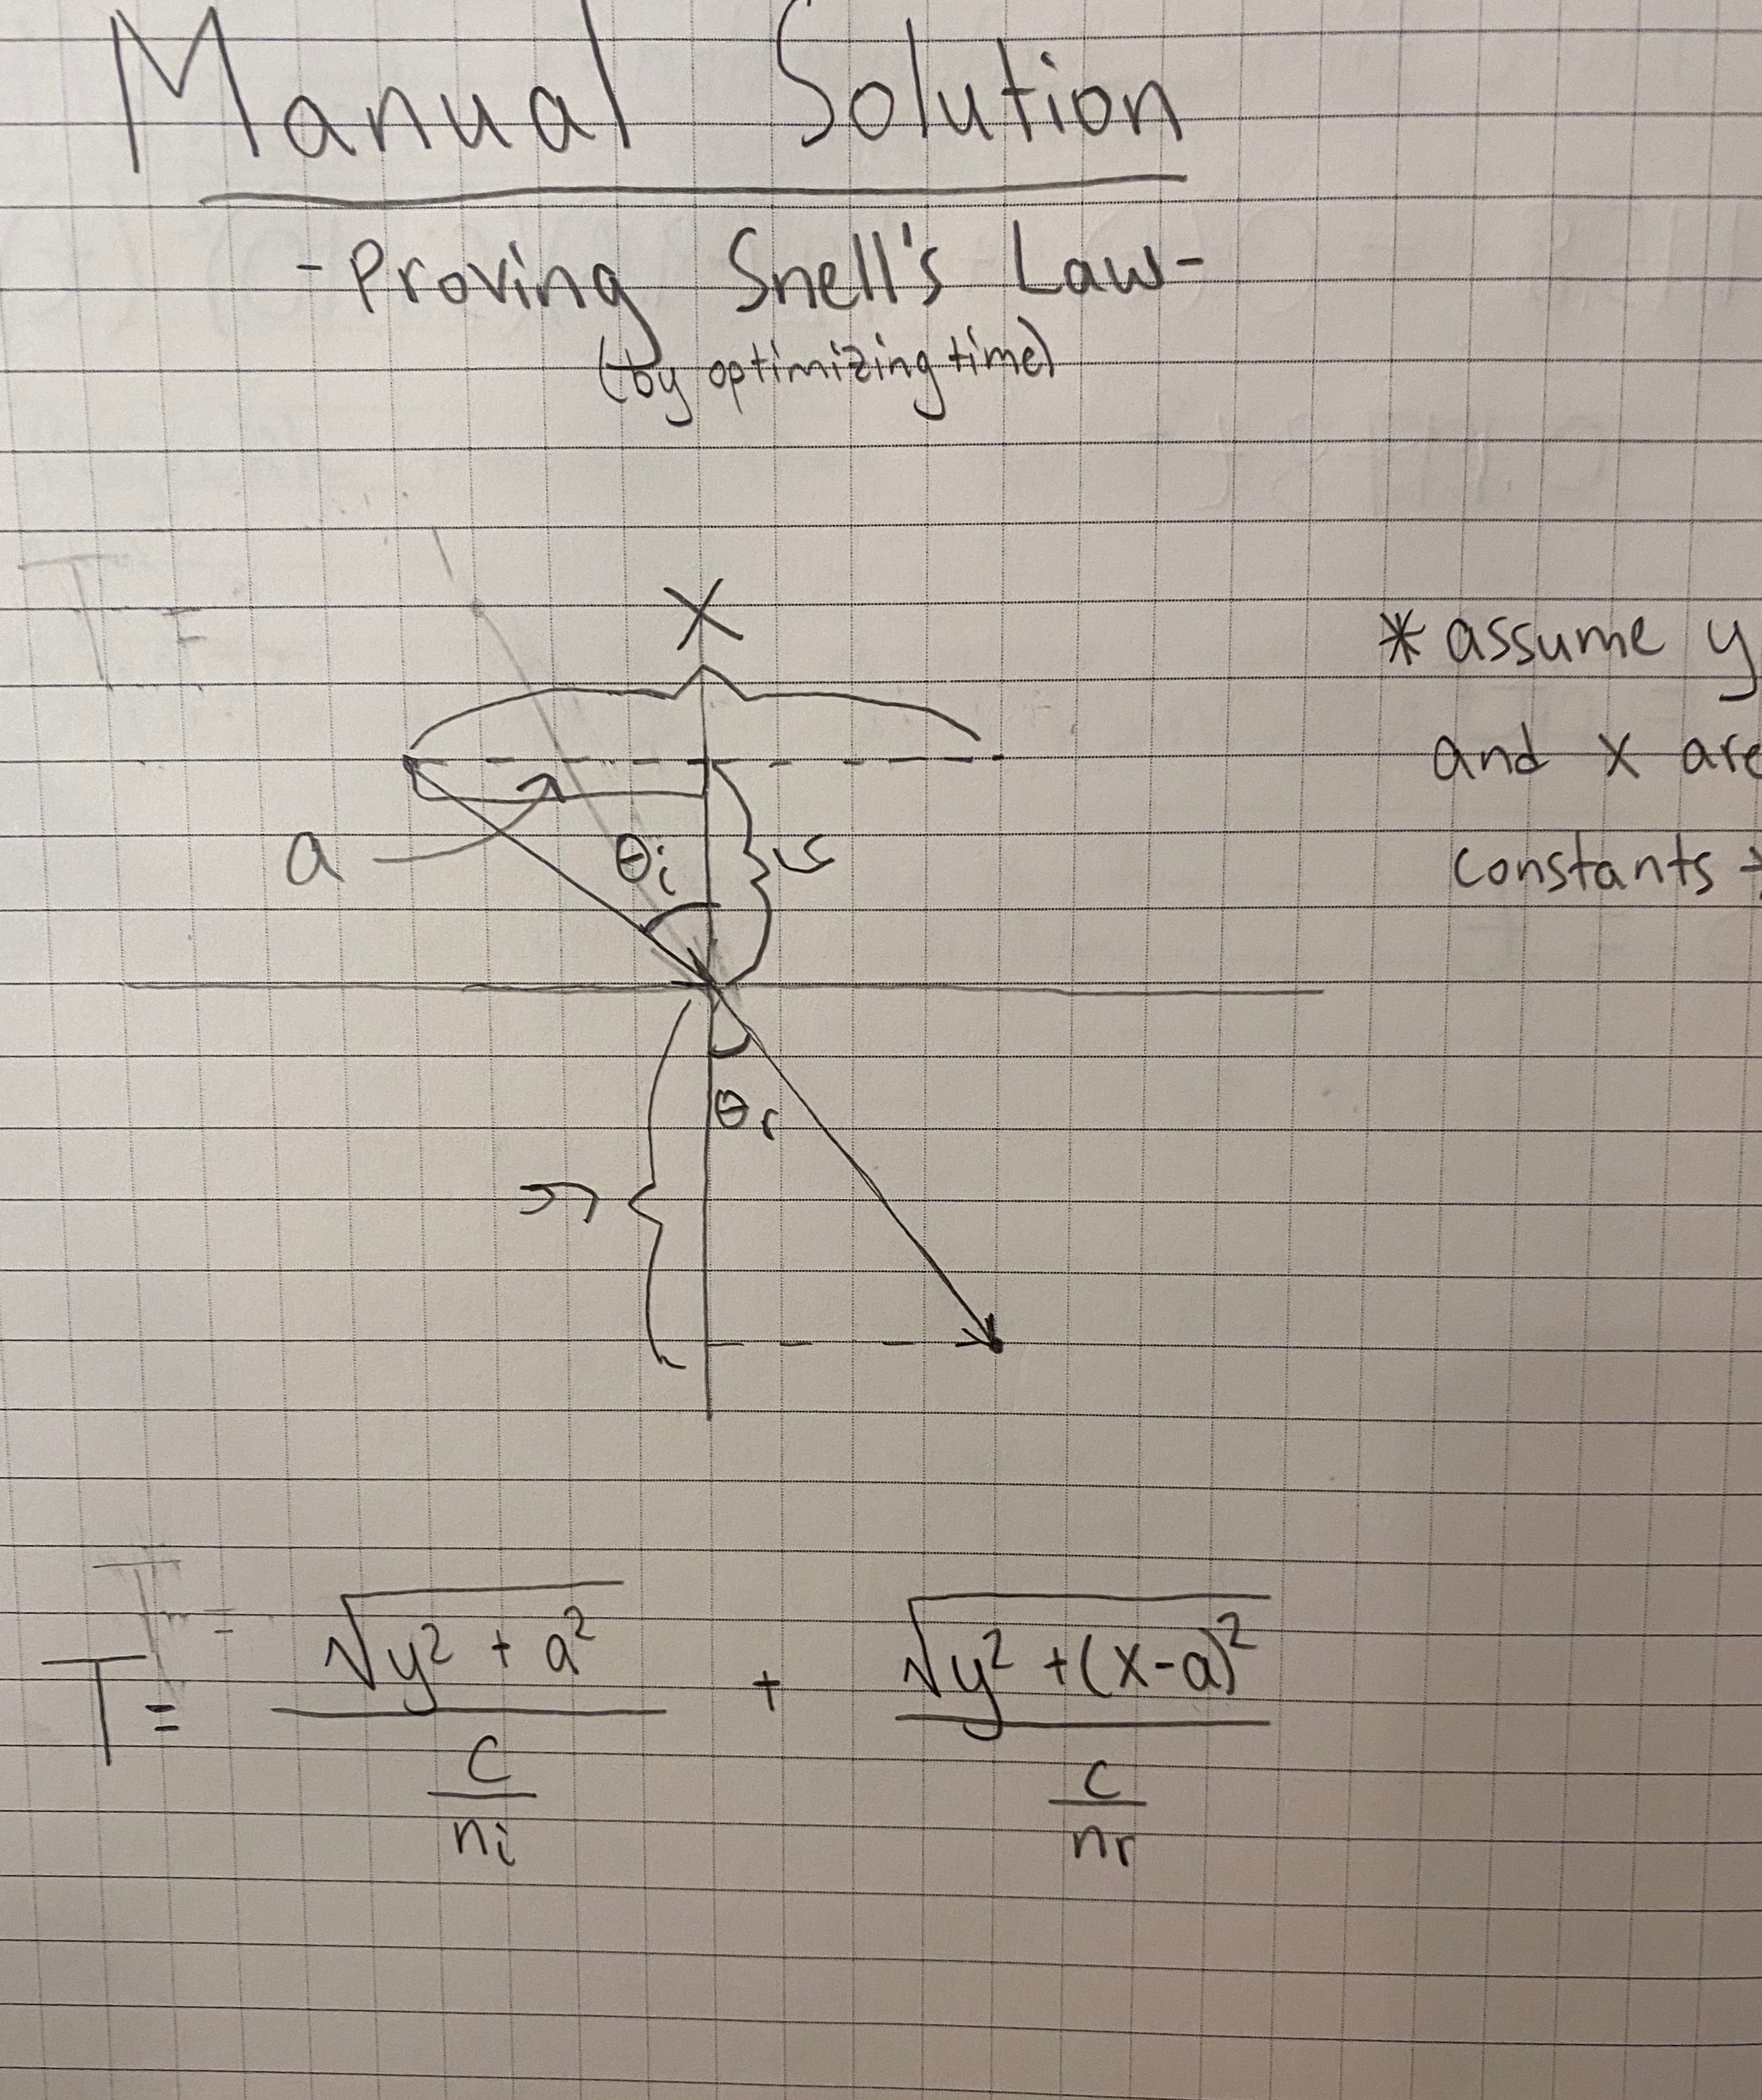 Manual Solution
-Proving Snell's Law-
(by optimizing time)
T =
X
* assume y
and x are
constants
a
θi
y
θr
y
T =
T = √(y² + a²) / (c/ni) + √(y² + (x-a)²) / (c/nr)